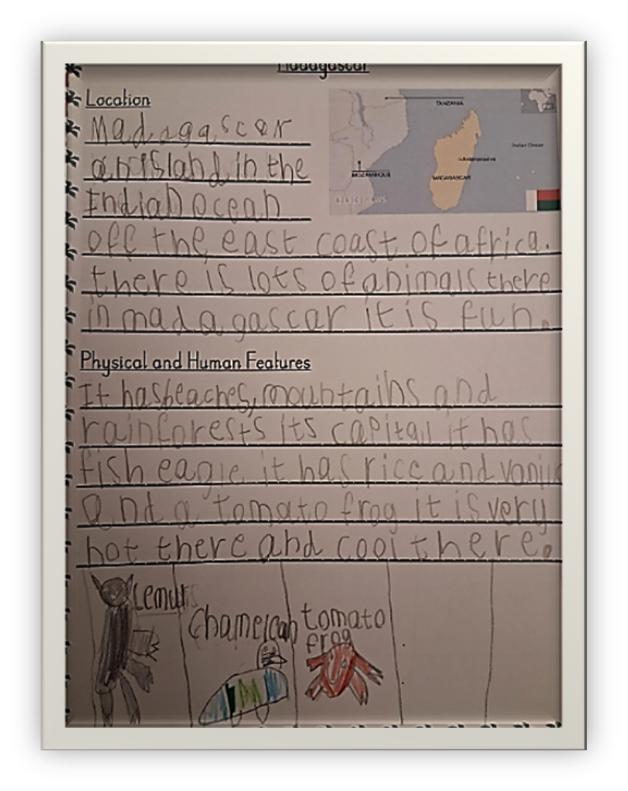 Madagascar
Location
Madagascar
an island in the
Indian ocean
off the east coast of africa.
there is lots of animals there
in madagascar it is fun.
TANZANIA
MOZAMBIQUE
MADAGASCAR
Indian Ocean
Physical and Human Features
It has beaches, mountains and
rainforests its capital it has
fish eagle it has rice and vanil
and a tomato frog it is very
hot there and cool there.
Lemurs
Chameleon
tomato
frog